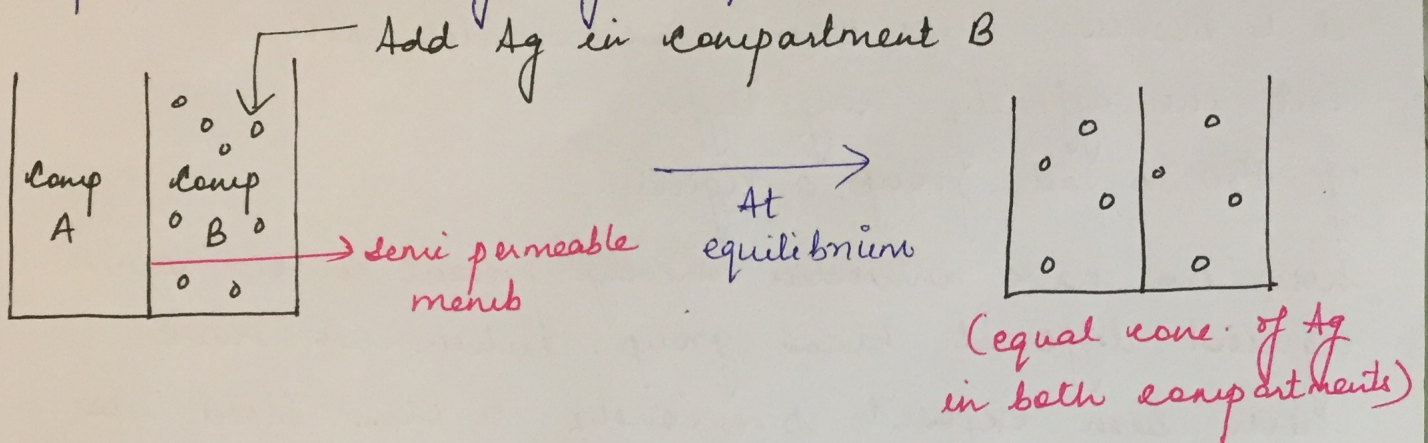 Add Ag in compartment B
Comp
A
Comp
B
semi permeable
memb
At
equilibrium
(equal conc. of Ag
in both compartments)